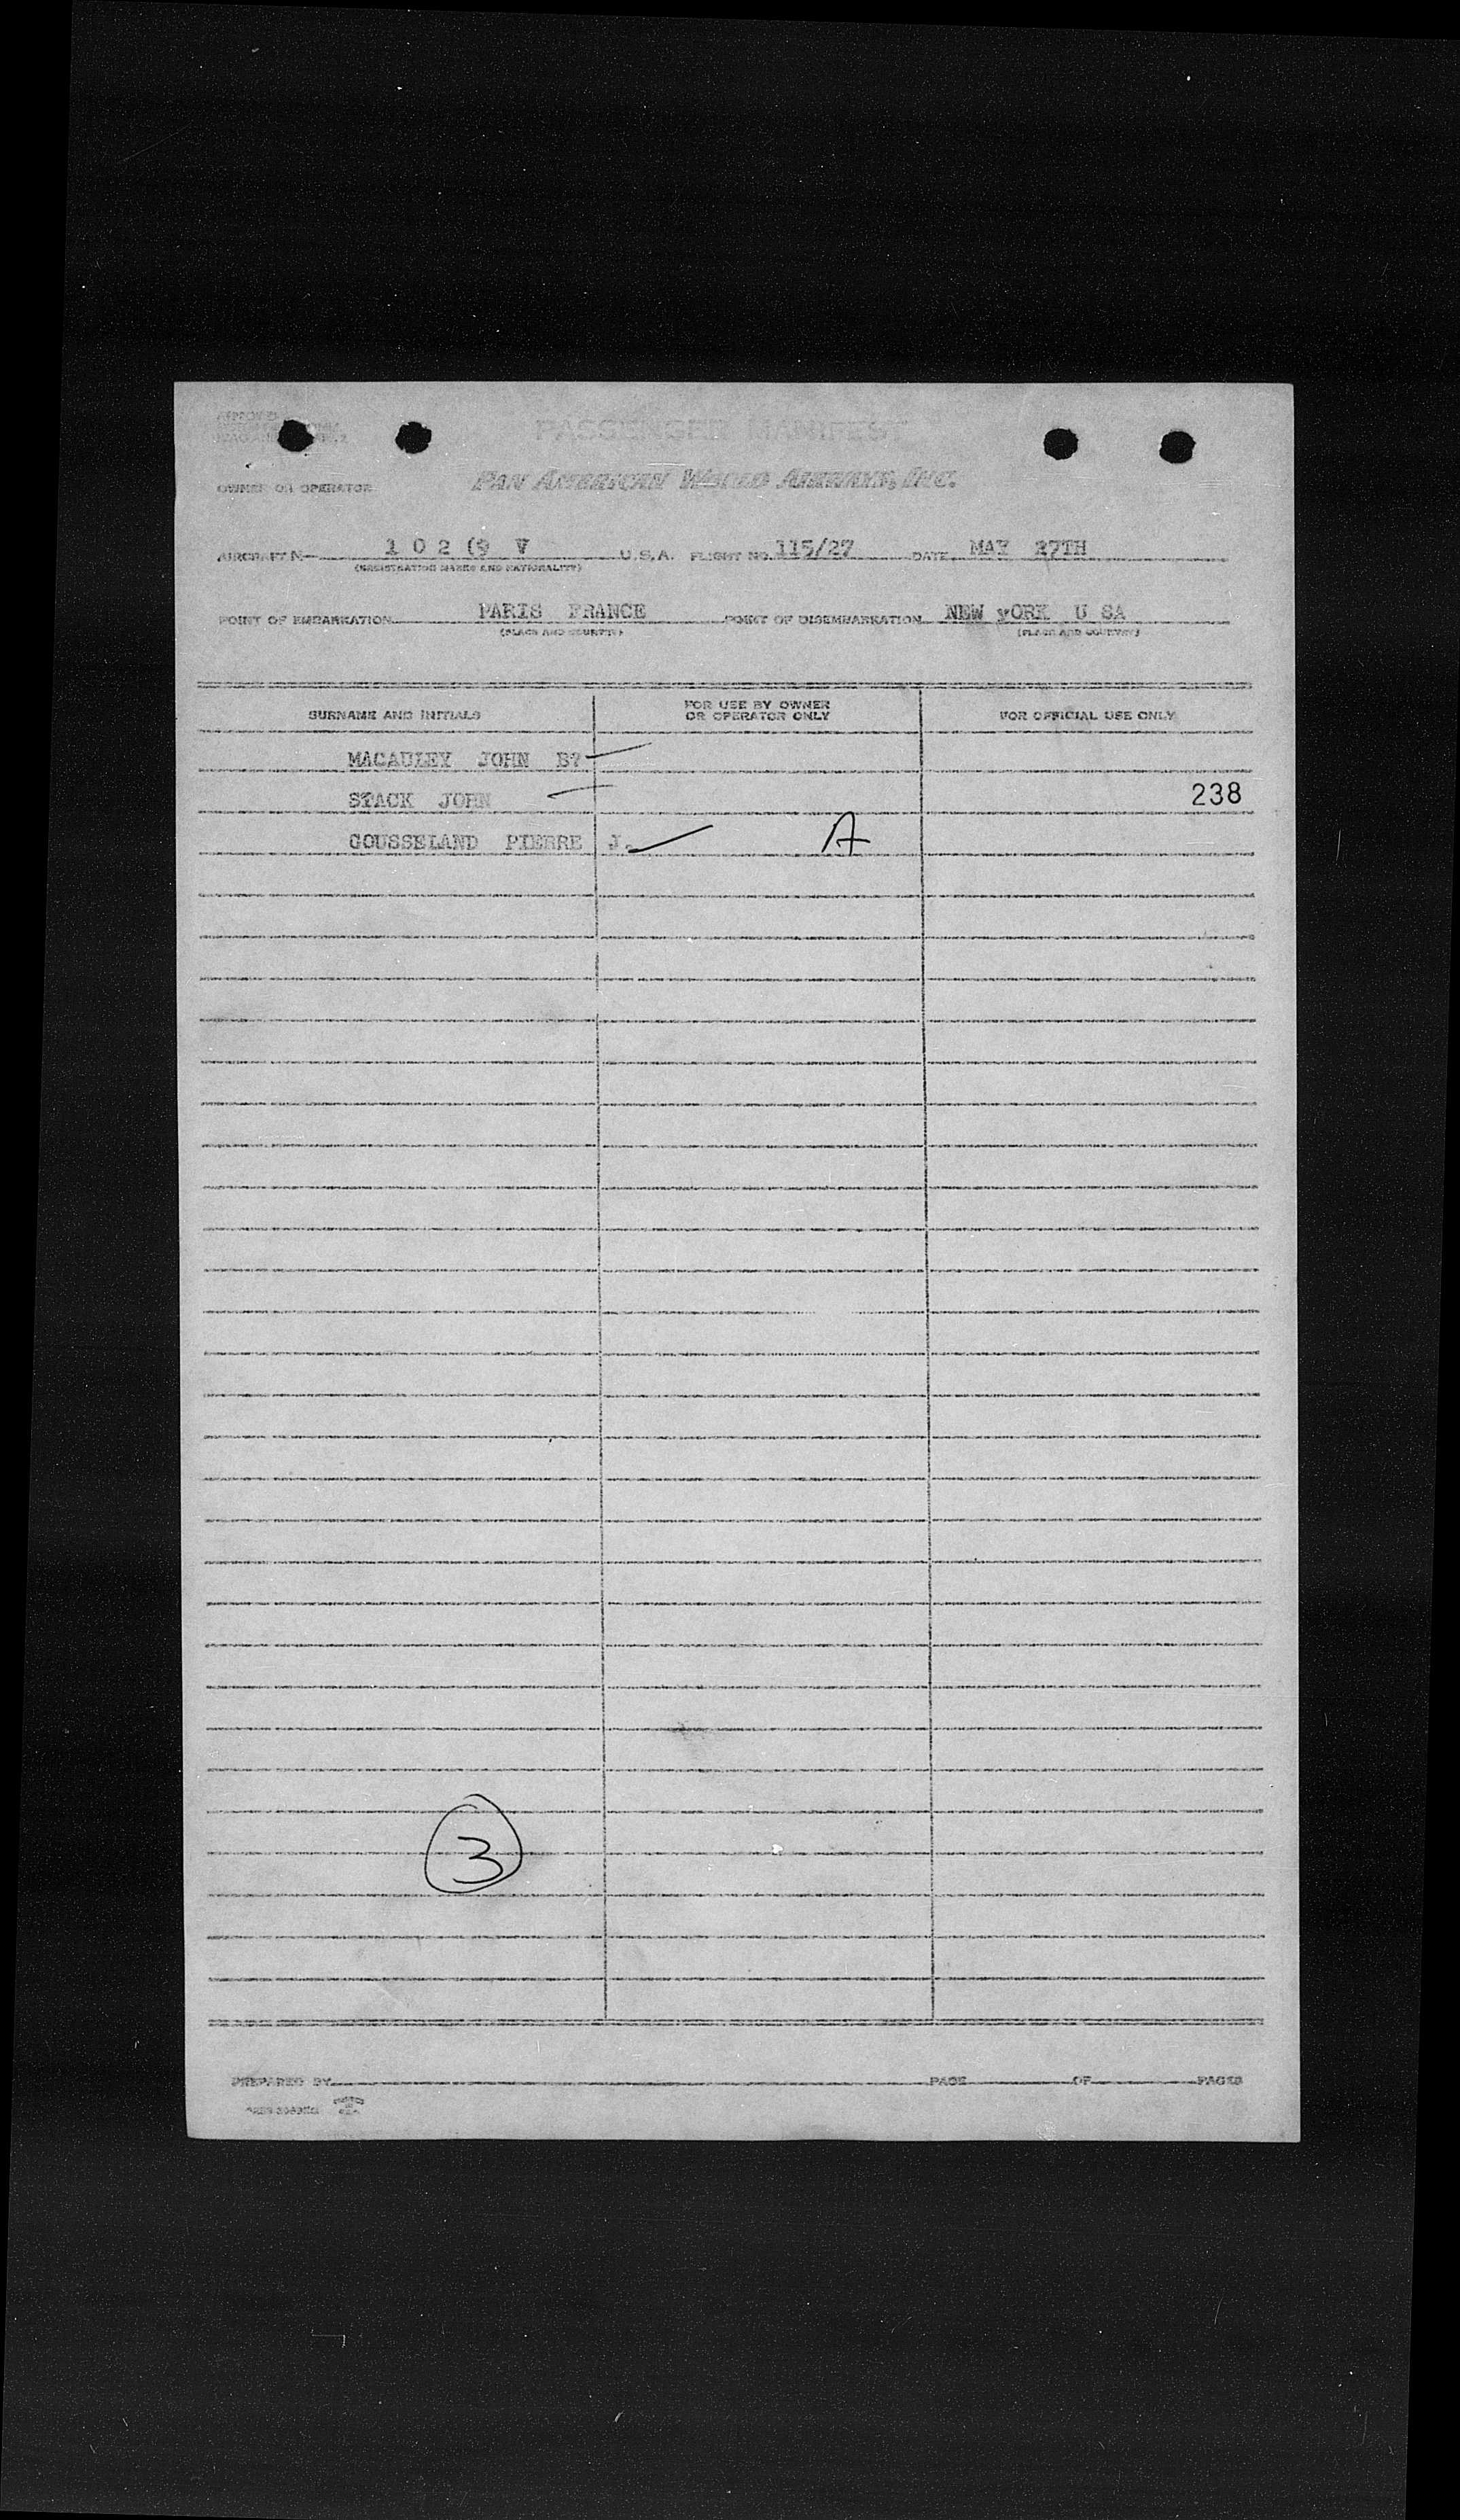 PASSENGER MANIFEST
OWNER OR OPERATOR PAN AMERICAN WORLD AIRWAYS, INC.
AIRCRAFT N— 1 0 2 (9 V U.S.A. FLIGHT NO. 115/27 DATE MAY 27TH
(REGISTRATION MARKS AND NATIONALITY)
POINT OF EMBARKATION PARIS FRANCE POINT OF DISEMBARKATION NEW yORK U SA
(PLACE AND COUNTRY) (PLACE AND COUNTRY)
SURNAME AND INITIALS FOR USE BY OWNER OR OPERATOR ONLY FOR OFFICIAL USE ONLY
MACAULEY JOHN B?
STACK JOHN 238
GOUSSELAND PIERRE J. A
3
PREPARED BY PAGE OF PAGES